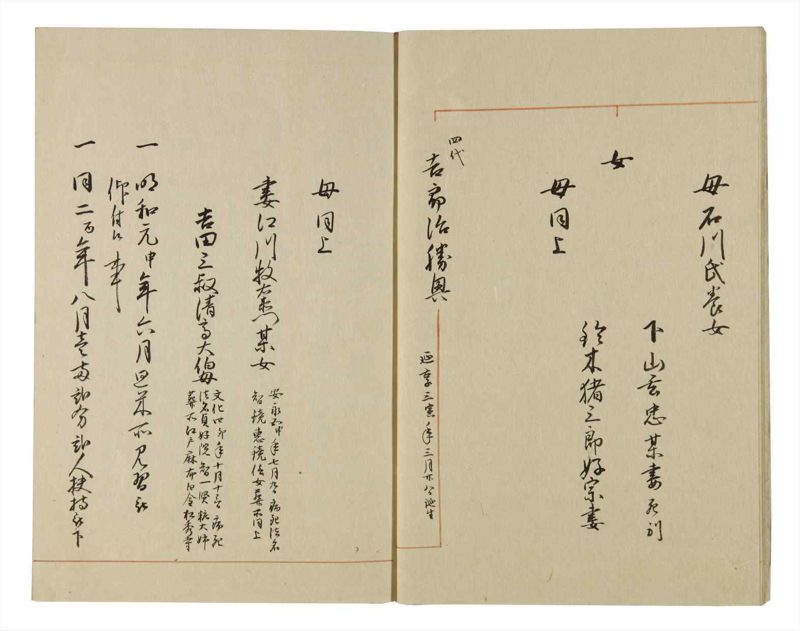 母石川氏養女
下山玄忠某妻 死別
女
母同上
鈴木猪三郎好宗妻
四代
吉字治勝興
延享三寅年三月廿八日誕生
母同上
妻江川牧右衛門某女
安永五申年七月 病死法名
智鏡恵 信女葬所同上
吉田三叔清高大伯母
文化四卯年十月十三日病死
法名貞好院智一賢 大姉
葬所江戸麻布白金松秀寺
一 明和元申年六月 見習被
仰付候事
一 同二酉年八月 人扶持被下